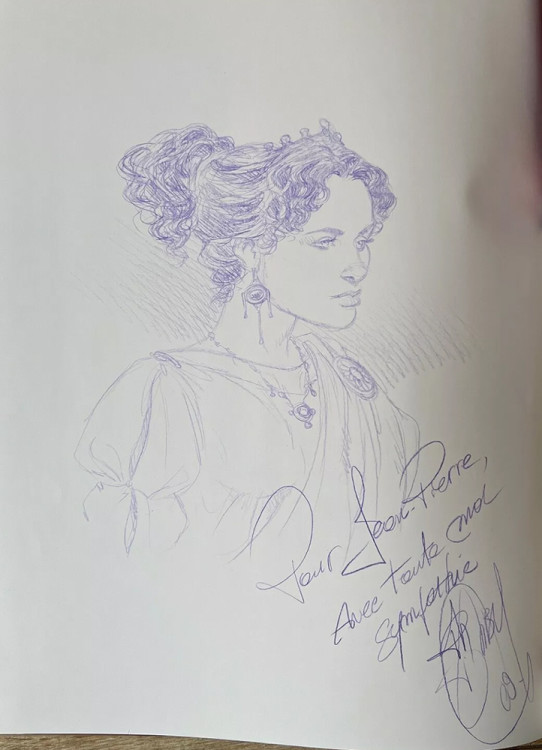 Pour Jean-Pierre,
Avec toute ma
sympathie